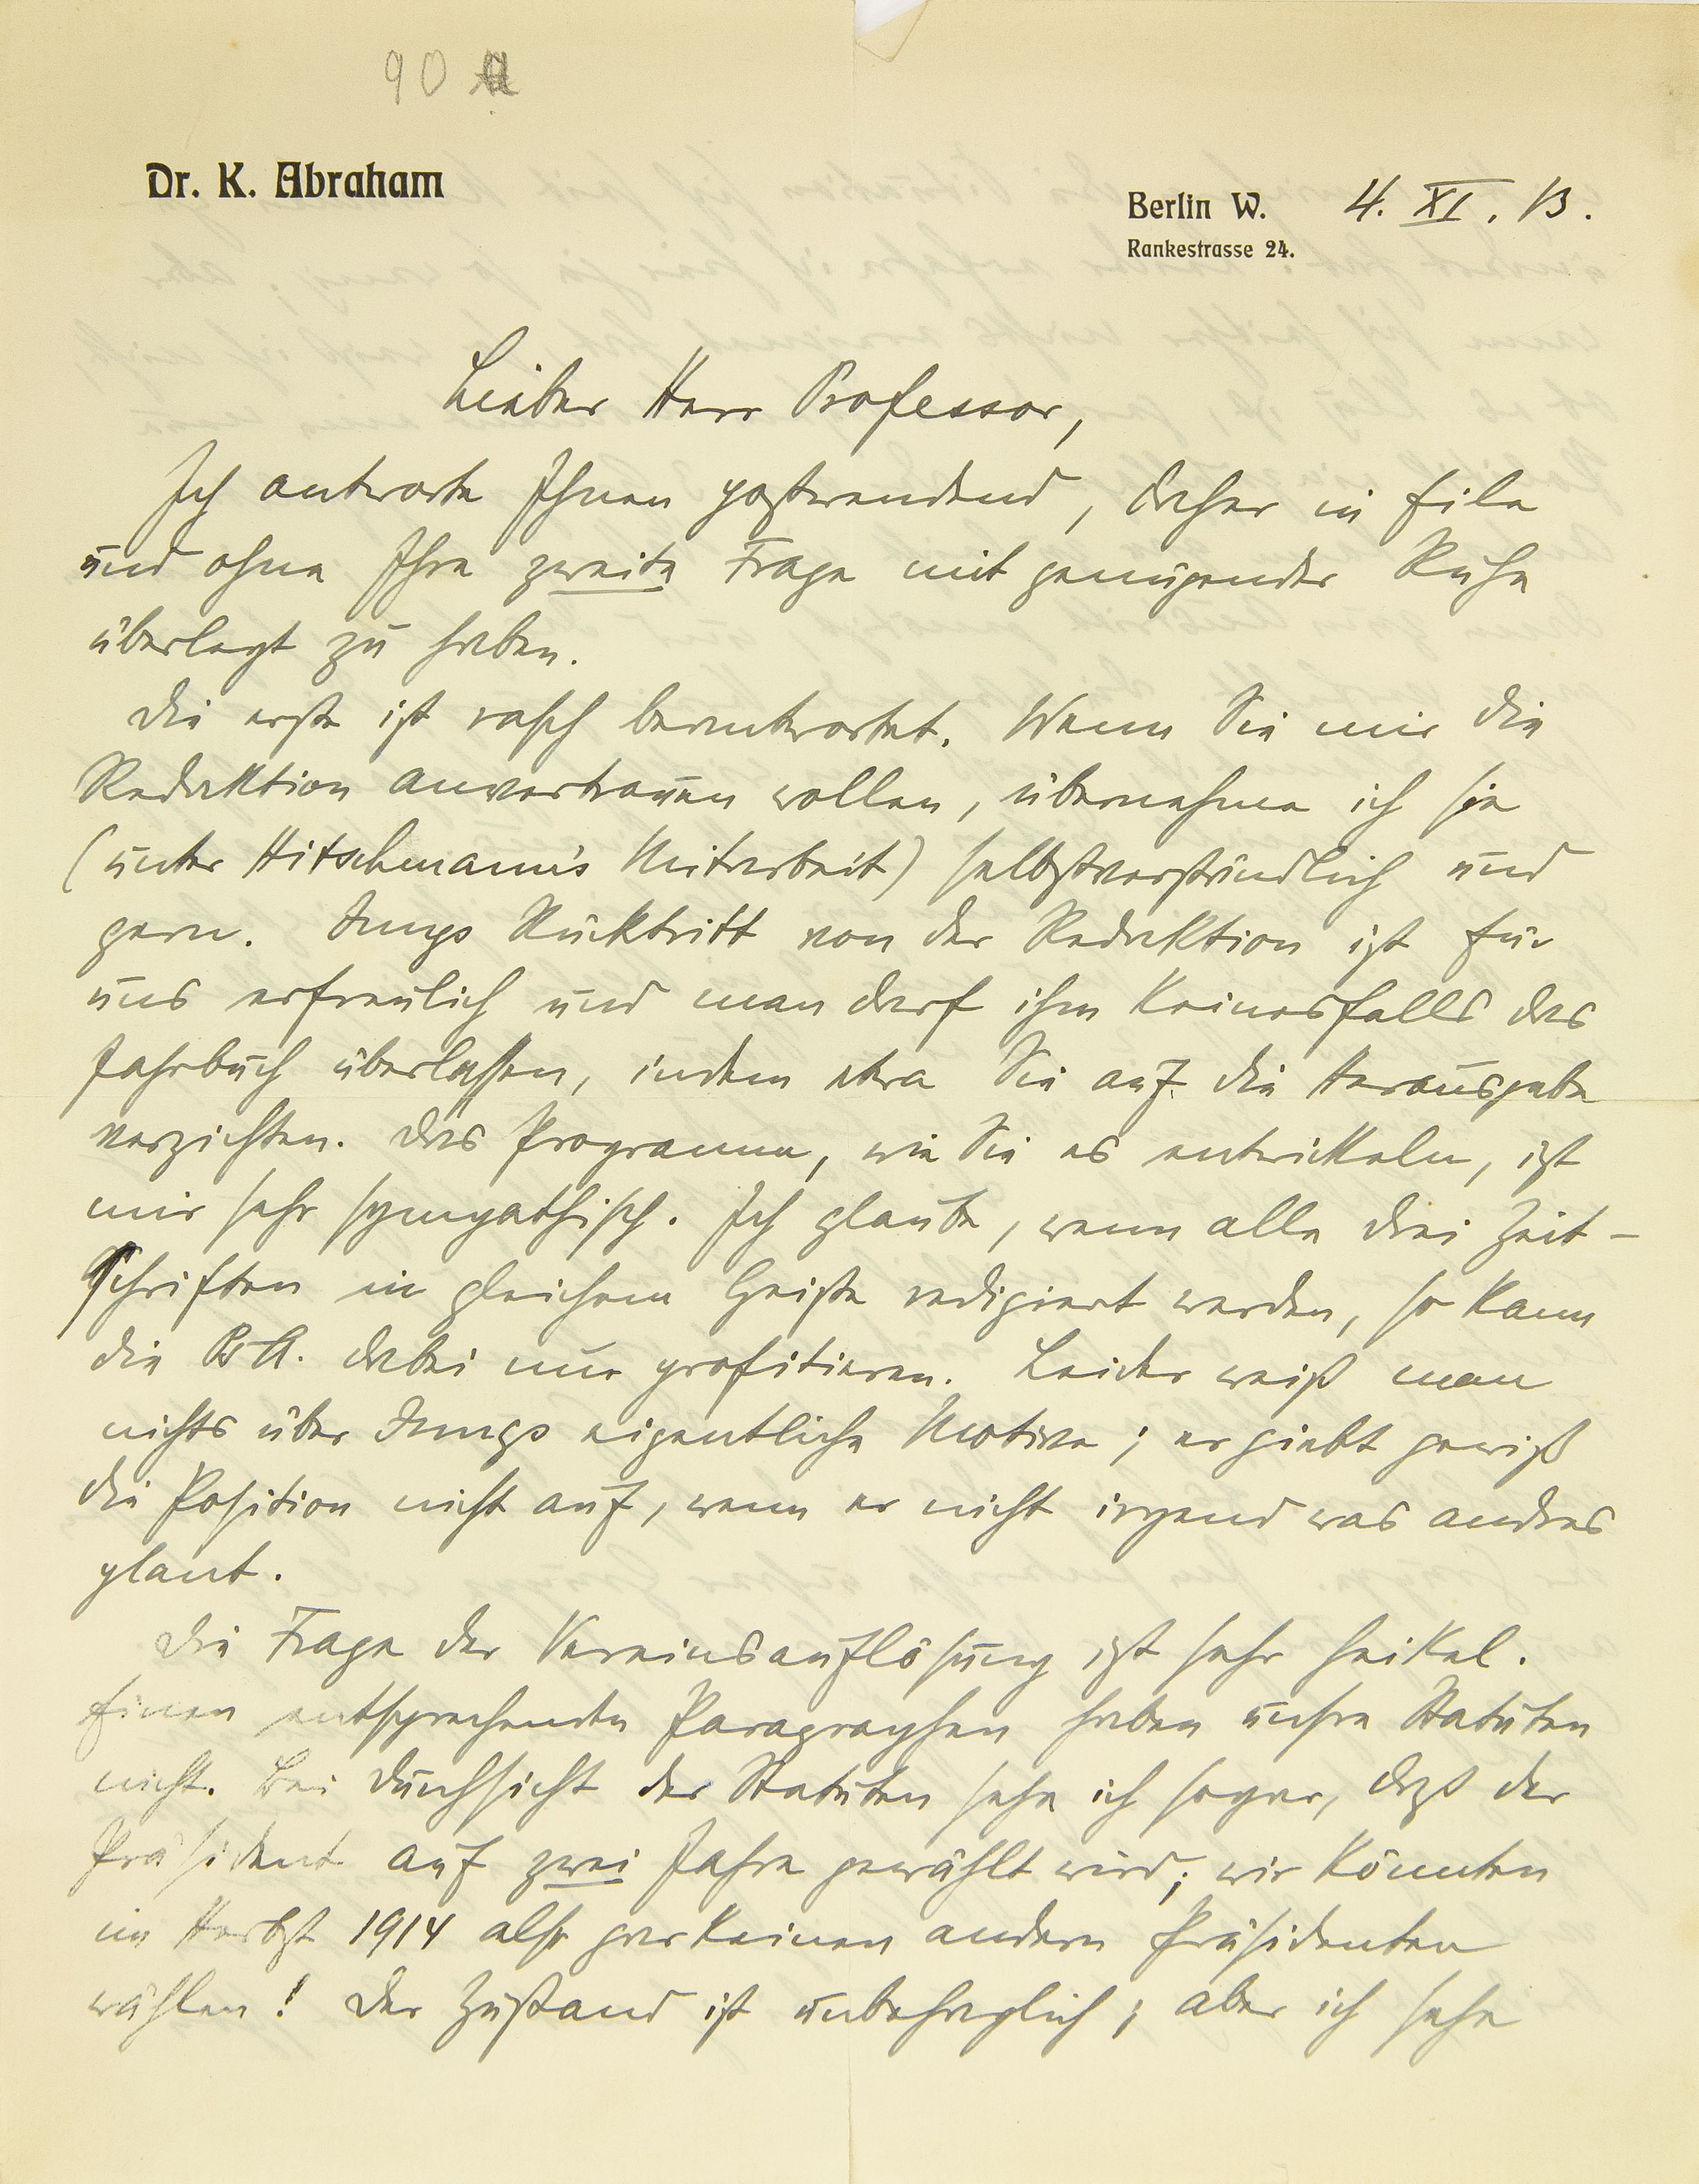 90 A
Dr. K. Abraham
Berlin W. 4. XI. 13.
Rankestrasse 24.
Lieber Herr Professor,
Ich antworte Ihnen postwendend, daher in Eile
und ohne Ihre zweite Frage mit genügender Ruhe
überlegt zu haben.
Die erste ist rasch beantwortet. Wenn Sie mir die
Redaktion anvertrauen wollen, übernehme ich sie
(unter Hitschmann's Mitarbeit) selbstverständlich und
gern. Jungs Rücktritt von der Redaktion ist für
uns erfreulich und man darf ihm keinesfalls das
Jahrbuch überlassen, indem etwa Sie auf die Herausgabe
verzichten. Das Programm, wie Sie es entwickeln, ist
mir sehr sympathisch. Ich glaube, wenn alle drei Zeit-
schriften in gleichem Geiste redigiert werden, so kann
die PsA. dabei nur profitieren. Leider weiß man
nichts über Jungs eigentliche Motive; er giebt gewiß
die Position nicht auf, wenn er nicht irgend was andres
plant.
Die Frage der Vereinsauflösung ist sehr heikel.
Einen entsprechenden Paragraphen haben unsre Statuten
nicht. Bei Durchsicht der Statuten sehe ich sogar, daß der
Präsident auf zwei Jahre gewählt wird; wir könnten
im Herbst 1914 also gar keinen andern Präsidenten
wählen! Der Zustand ist unbehaglich; aber ich sehe